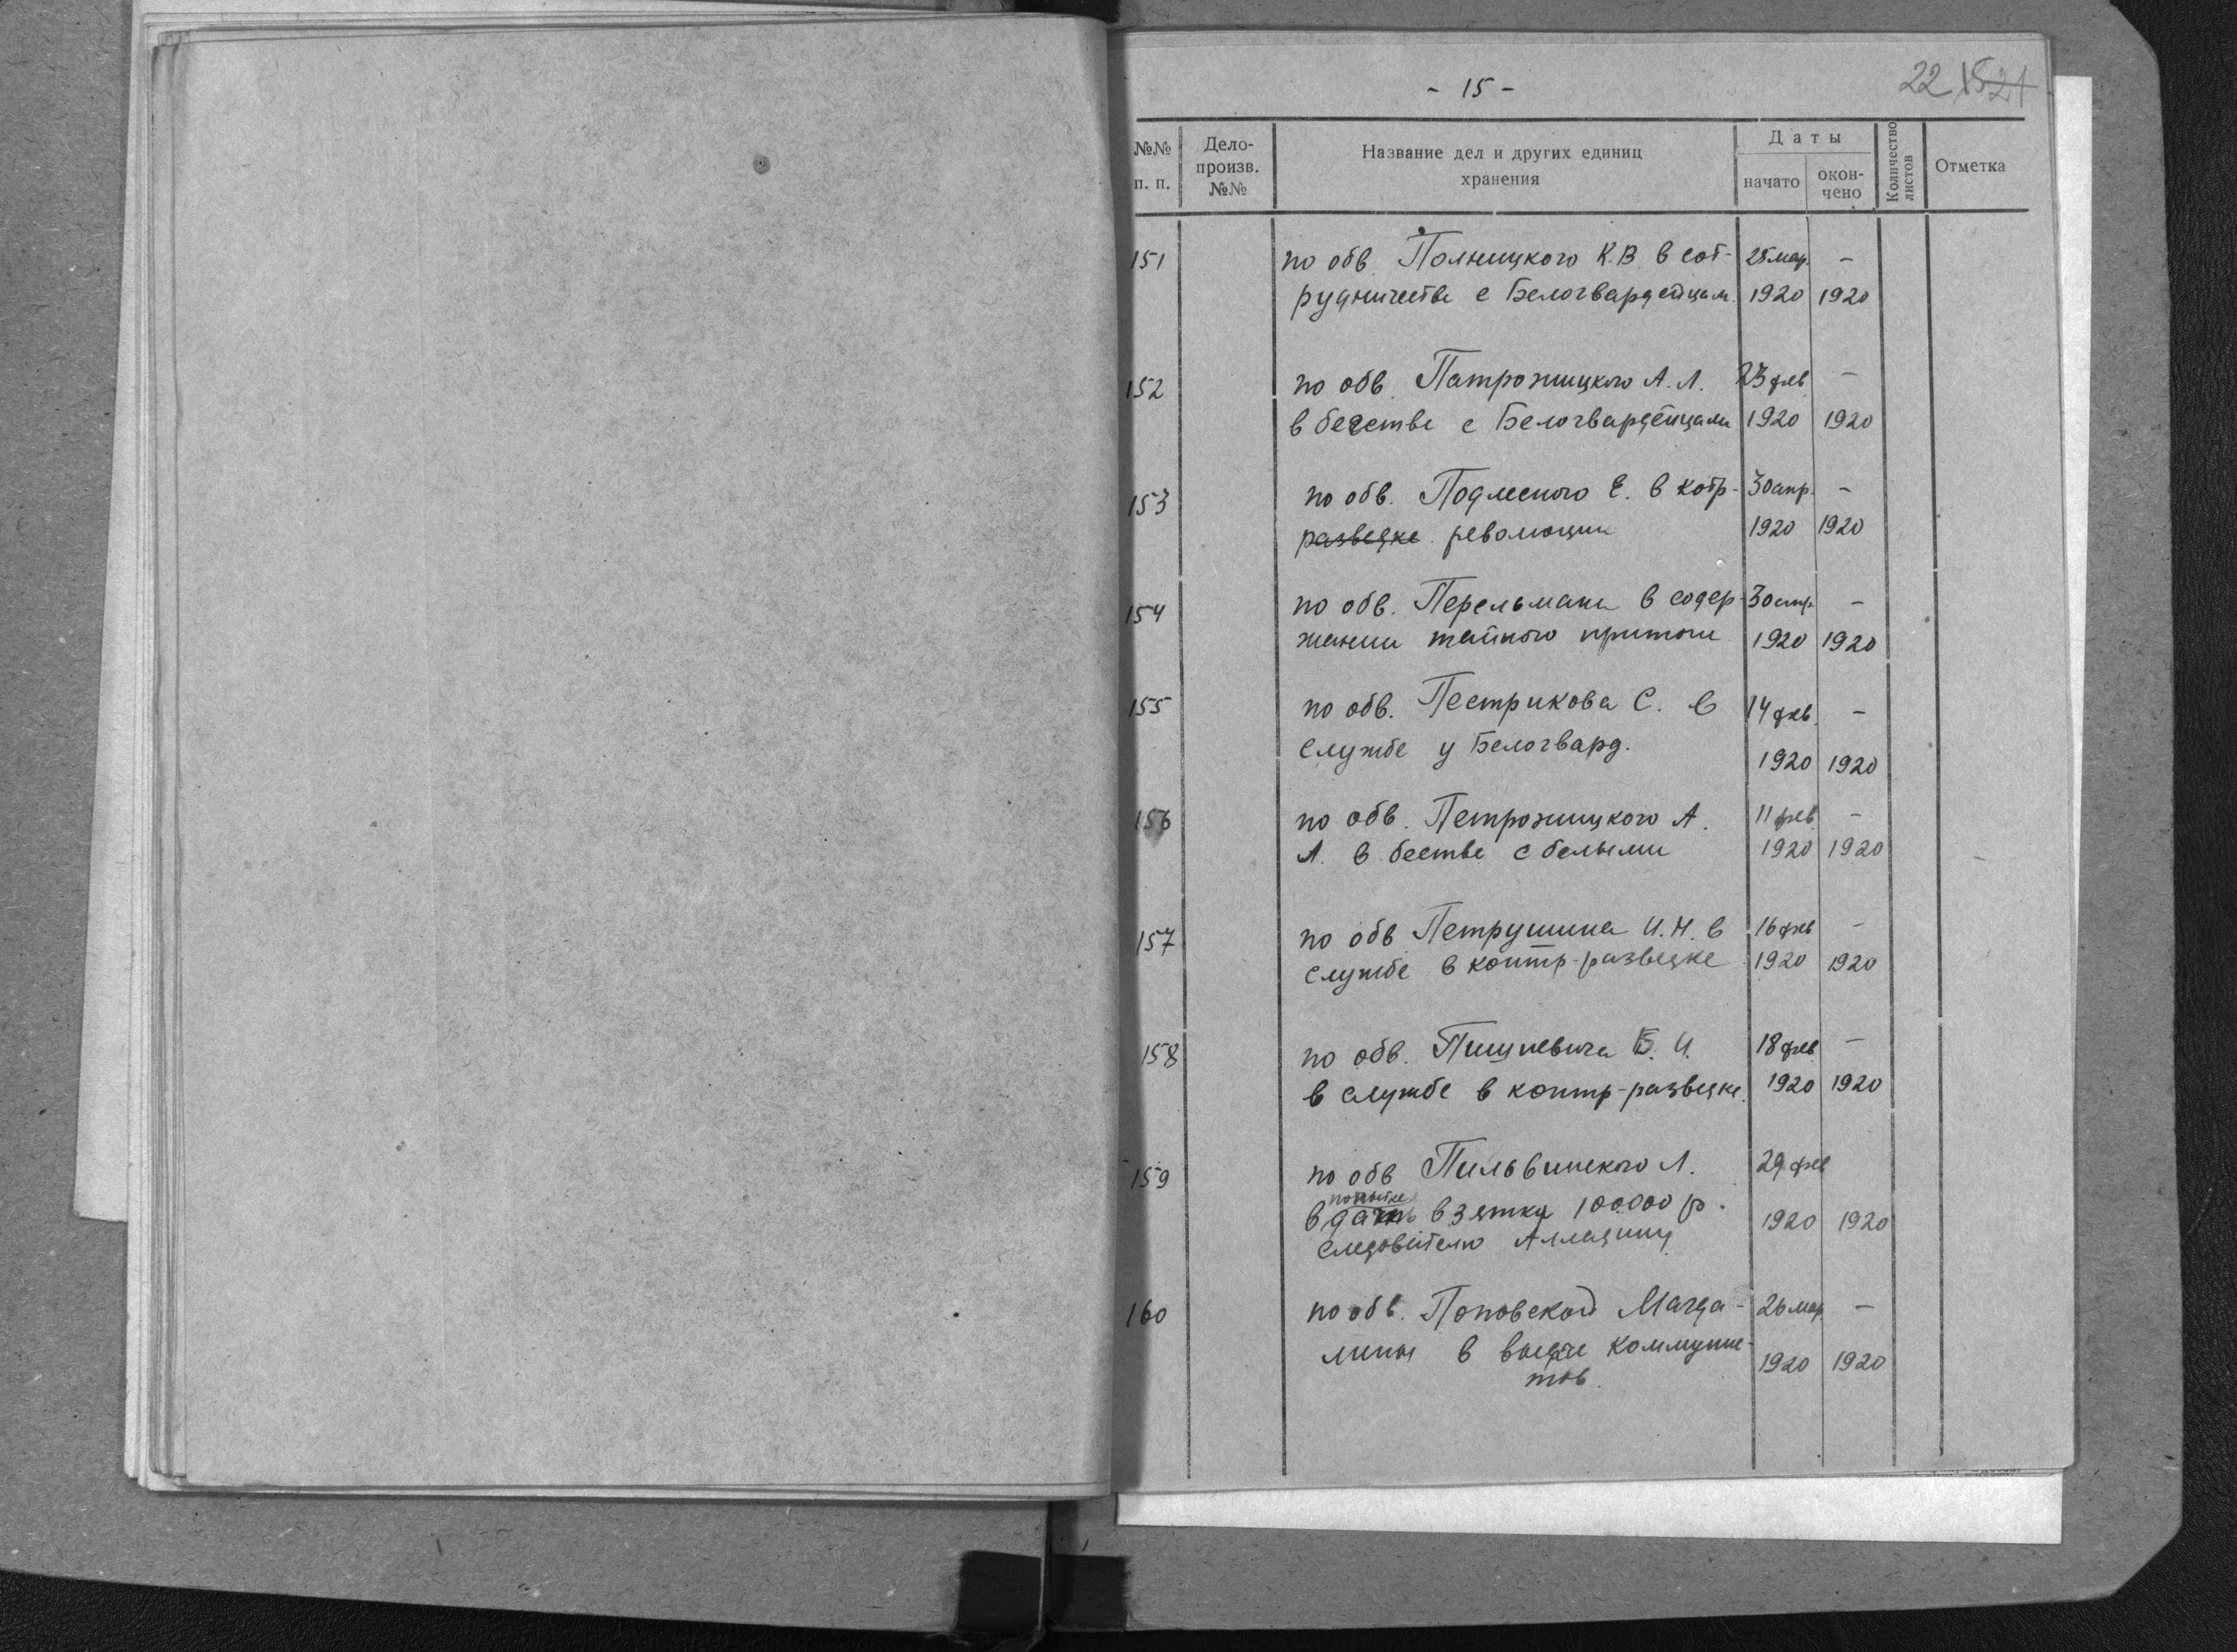 - 15 -
22 15 21
№№ п. п.
Дело-произв. №№
Название дел и других единиц хранения
Даты
начато
окон-чено
Количество листов
Отметка
151 по обв. Полницкого К.В. в сот- 25 мар. -
рудничестве с Белогвардейцам. 1920 1920
152 по обв. Патрожицкого А.Л. 23 фев -
в бегстве с Белогвардейцами 1920 1920
153 по обв. Подлесного Е. в котр- 30 апр. -
разведке революции 1920 1920
154 по обв. Перельмана в содер- 30 апр. -
жании тайного притона 1920 1920
155 по обв. Пестрикова С. в 14 фев. -
службе у Белогвард. 1920 1920
156 по обв. Петрожицкого А. 11 фев. -
Л. в бестве с белыми 1920 1920
157 по обв Петрушина И.Н. в 16 фев -
службе в контр-разведке 1920 1920
158 по обв. Пищиевича Б. И. 18 фев -
в службе в контр-разведке. 1920 1920
159 по обв Пильвинского Л. 29 фев
попытке
в дать взятку 100000 р.
следователю Алладину 1920 1920
160 по обв. Поповской Магда- 26 мар. -
лины в выдаче коммунис- 1920 1920
тов.